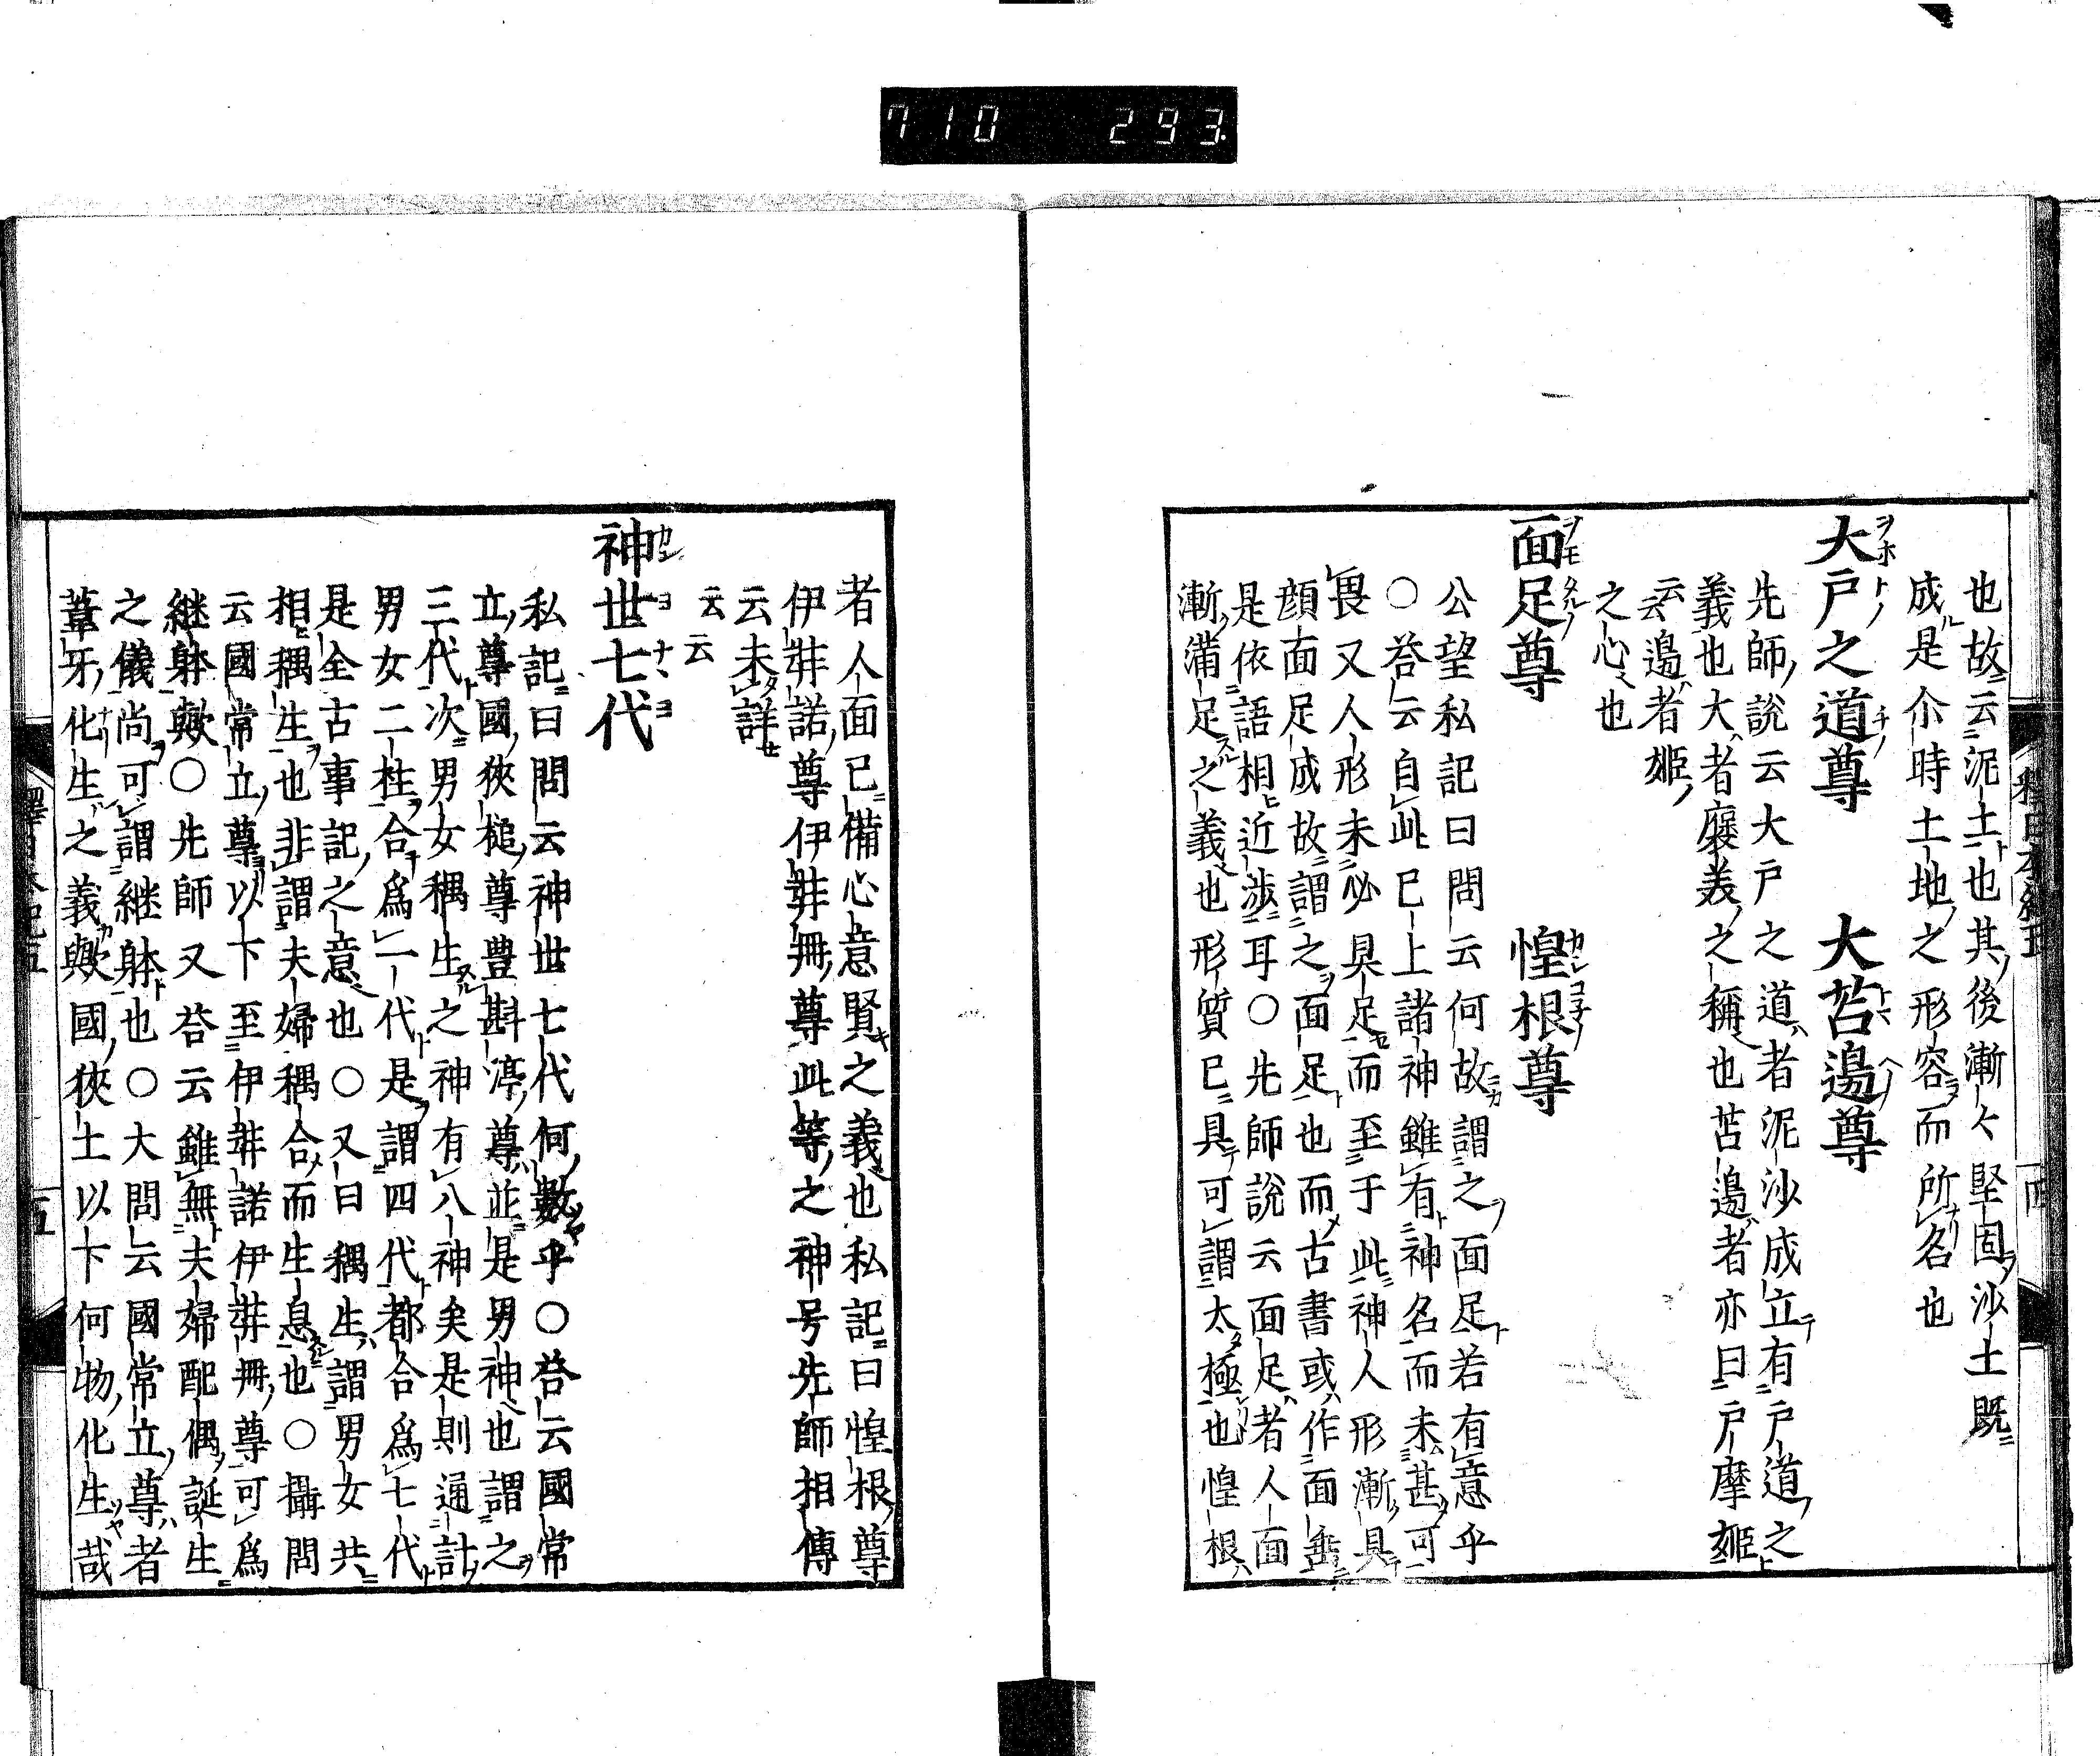 710 293.
也故云泥土也其後漸々堅固沙土既
成是尒時土地之形容而所名也
大戸之道尊 大苫邊尊
先師說云大戸之道者泥沙成立有戸道之
義也大者褒美之稱也苫邊者亦曰戸摩姬
云云邊者姬
之心也
面足尊 惶根尊
公望私記曰問云何故謂之面足若有意乎
○荅云自此已上諸神雖有神名而未甚可
畏又人形未必具足而至于此神人形漸具
顔面足成故謂之面足也而古書或作面垂
是依語相近涉耳○先師說云面足者人面
漸滿足之義也形質已具可謂太極也惶根
者人面已備心意賢之義也私記曰惶根尊
伊弉諾尊伊弉冊尊此等之神号先師相傳
云未詳
云云
神世七代
私記曰問云神世七代何數乎○荅云國常
立尊國狹槌尊豊斟渟尊並是男神也謂之
三代次男女耦生之神有八神矣是則通計
男女二柱合爲一代是謂四代都合爲七代
是全古事記之意也○又曰耦生謂男女共
相耦生也非謂夫婦耦合而生息也○攝問
云國常立尊以下至伊弉諾伊弉冊尊可爲
継躰歟○先師又荅云雖無夫婦配偶誕生
之儀尚可謂継躰也○大問云國常立尊者
葦牙化生之義歟國狹土以下何物化生哉